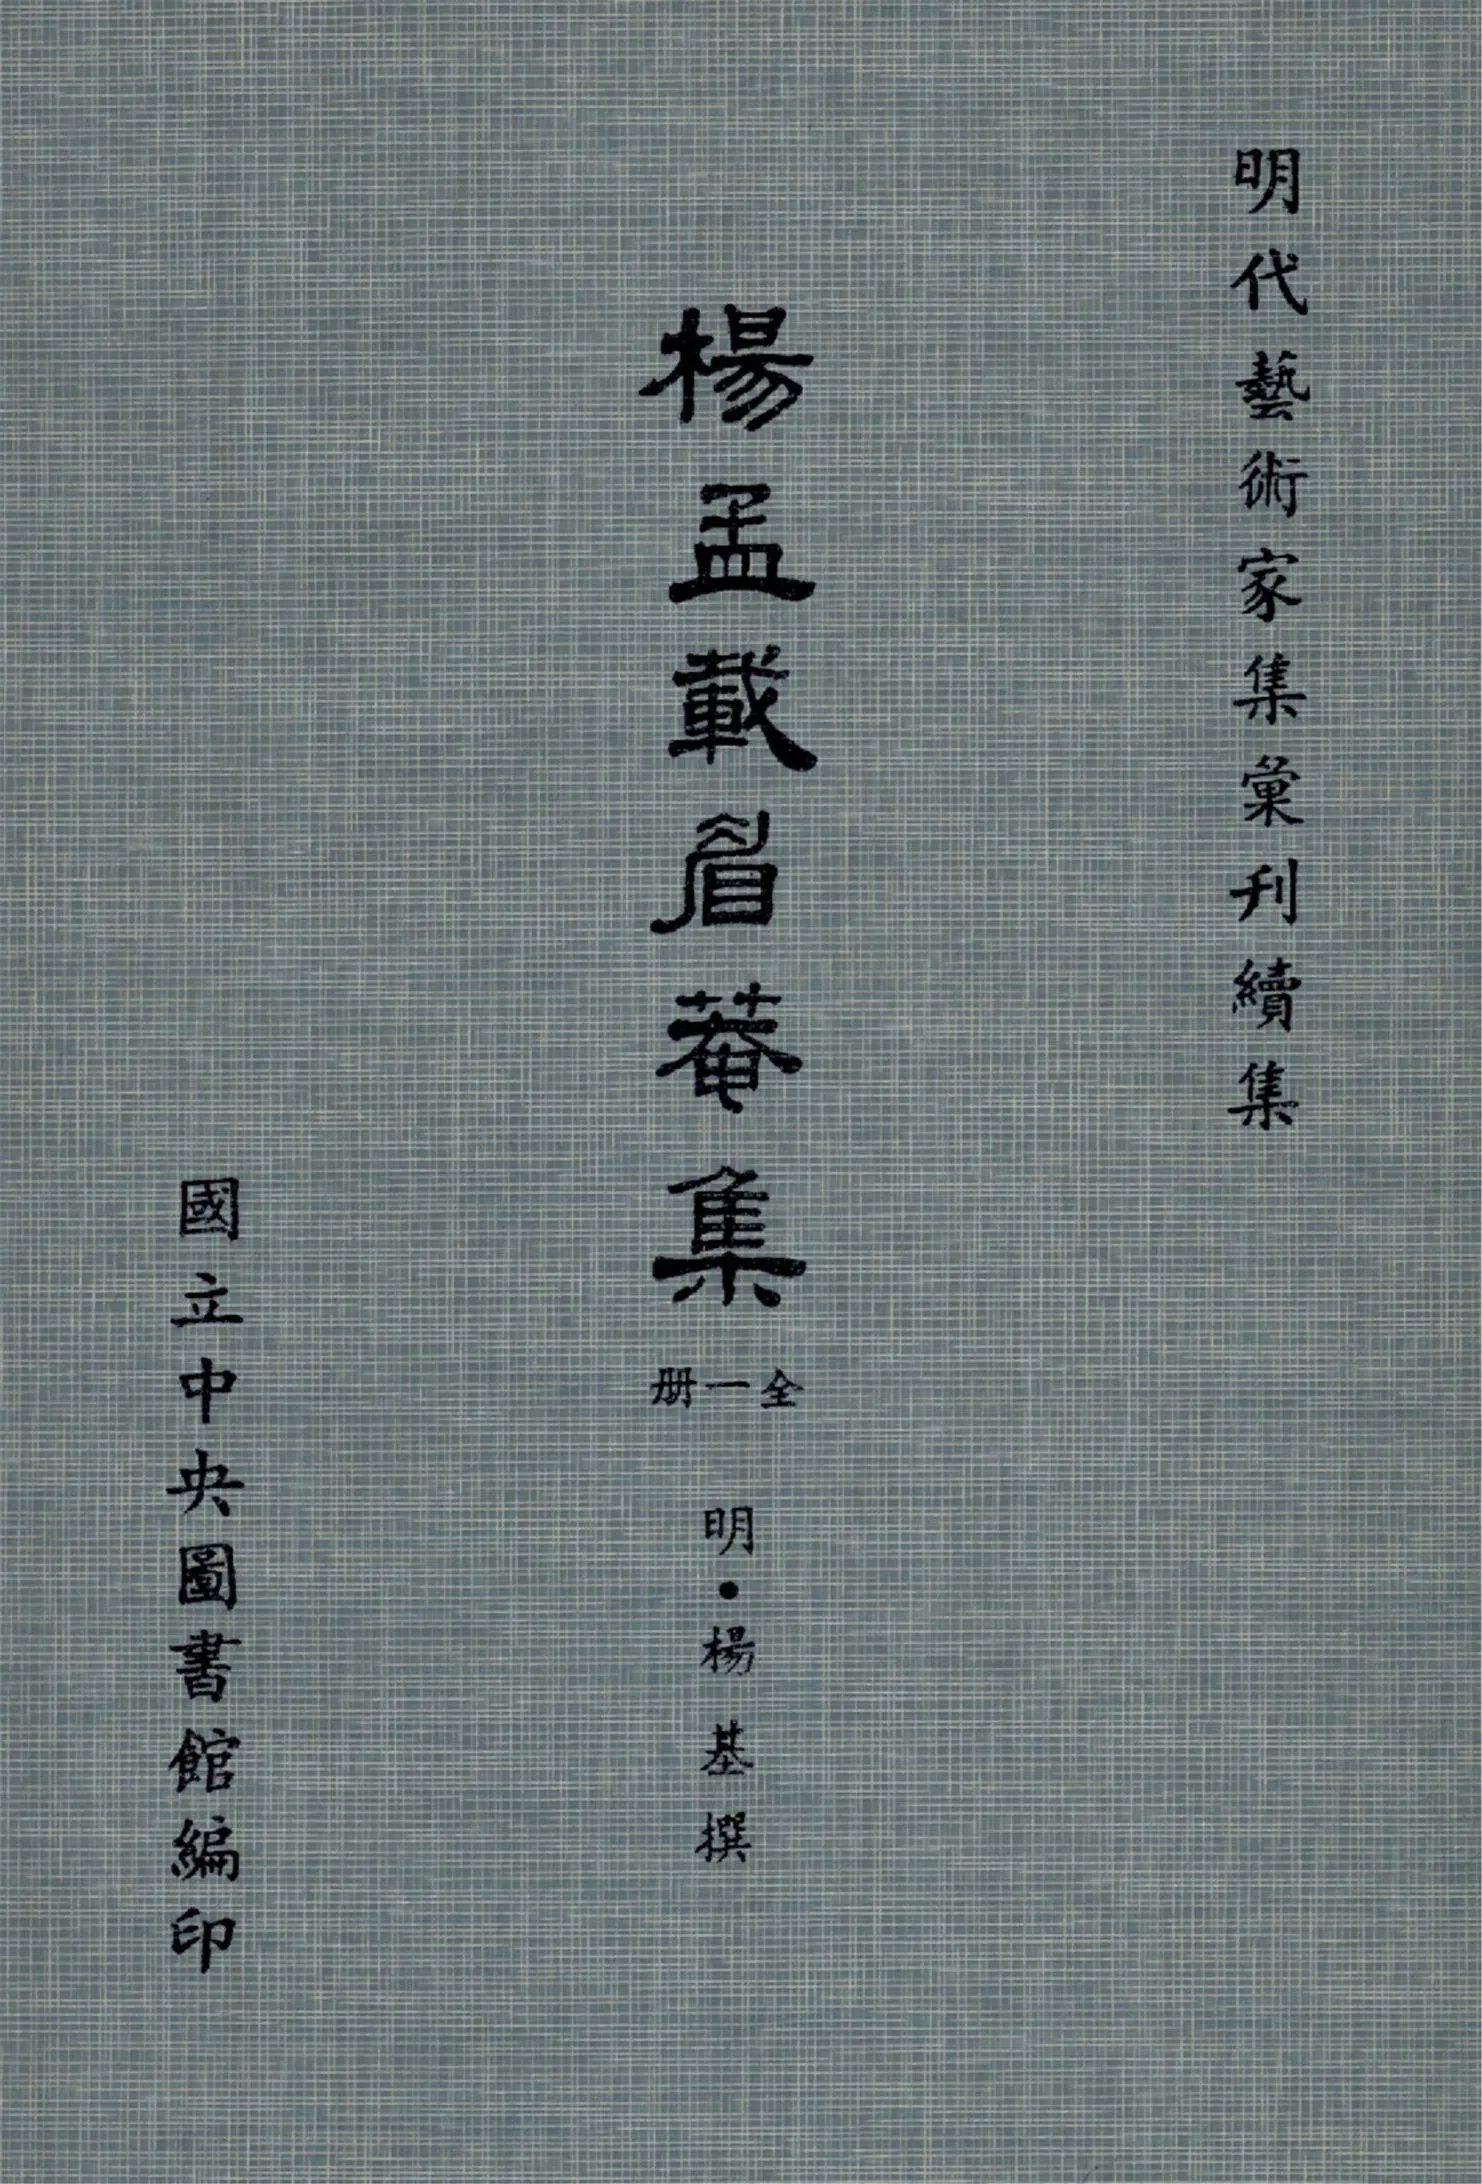 明代藝術家集彙刊續集
楊孟載眉菴集
全一册
明•楊基撰
國立中央圖書館編印